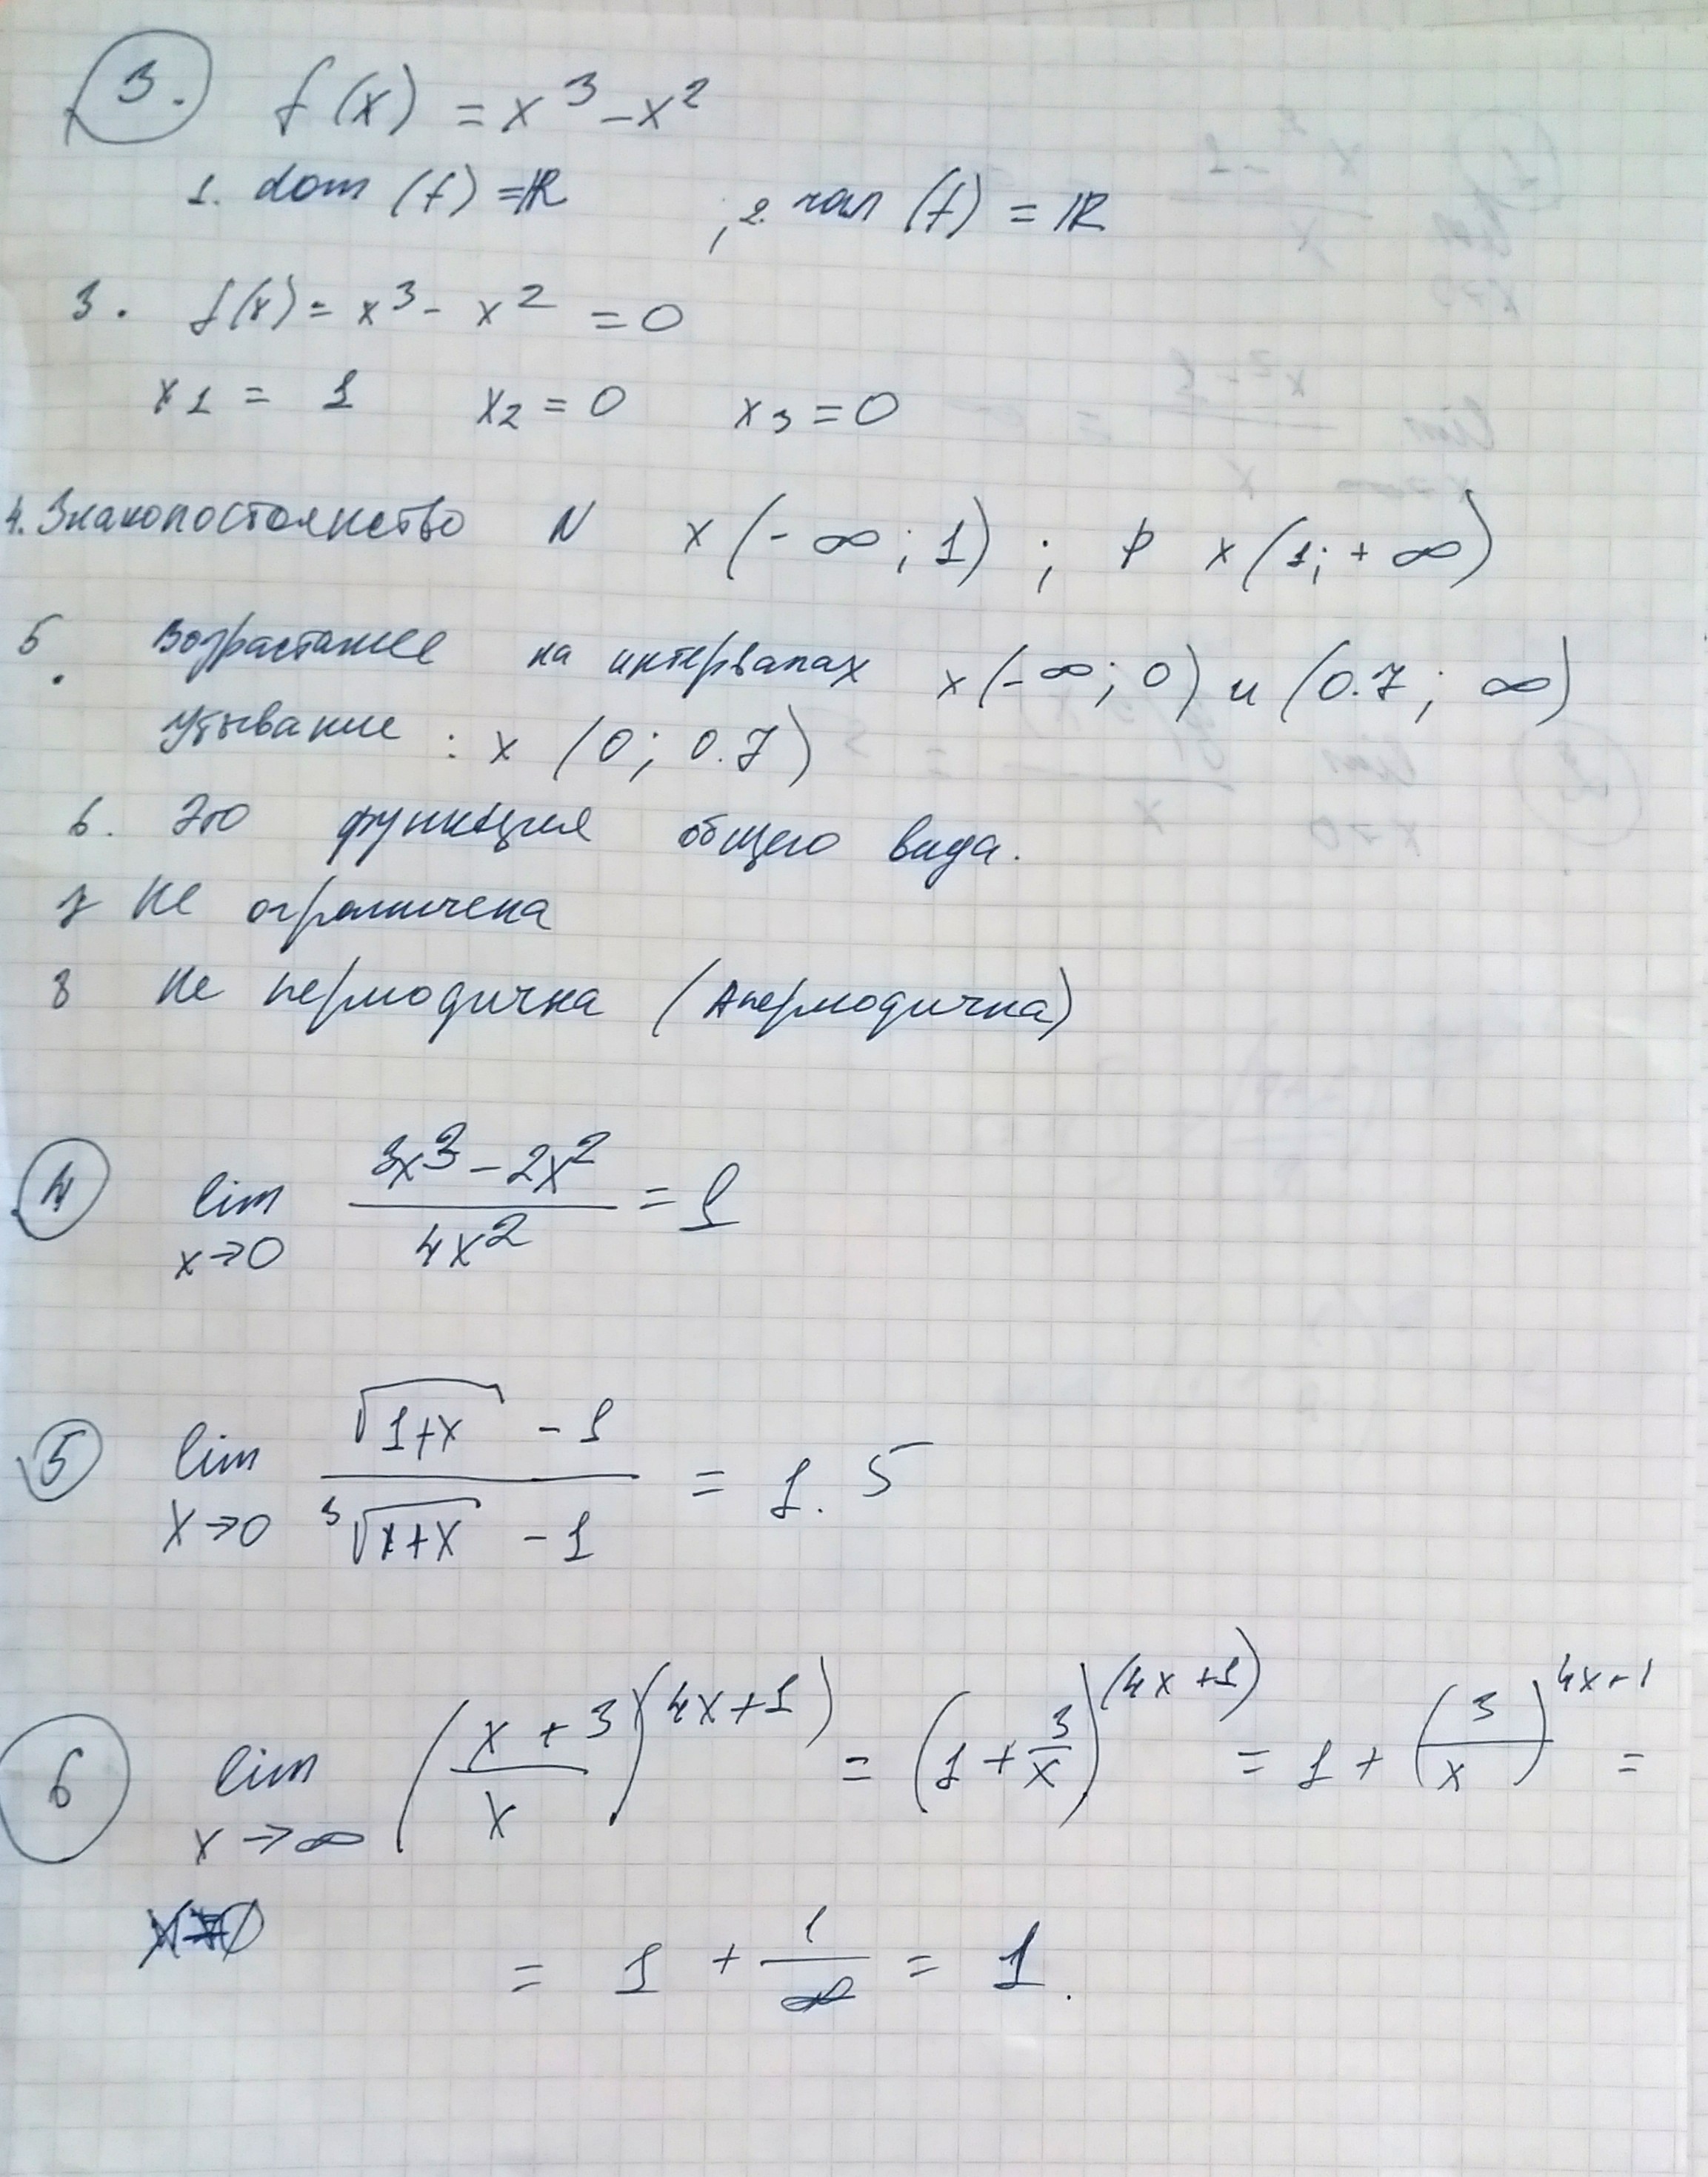 3. f(x) = x³ - x²
1. dom (f) = ℝ ; 2. ran (f) = ℝ
3. f(x) = x³ - x² = 0
x₁ = 1 x₂ = 0 x₃ = 0
4. Знакопостоянство N x (-∞; 1) ; P x (1; +∞)
5. Возрастание на интервалах x (-∞; 0) и (0.7; ∞)
Убывание : x (0; 0.7)
6. Это функция общего вида.
7 Не ограничена
8 Не периодична (Апериодична)
4 lim x→0 (3x³ - 2x²)/(4x²) = 1
5 lim x→0 (√(1+x) - 1)/(³√(x+x) - 1) = 1.5
6 lim x→∞ ((x+3)/x)^(4x+1) = (1 + 3/x)^(4x+1) = 1 + (3/x)^4x+1 =
= 1 + 1/∞ = 1.